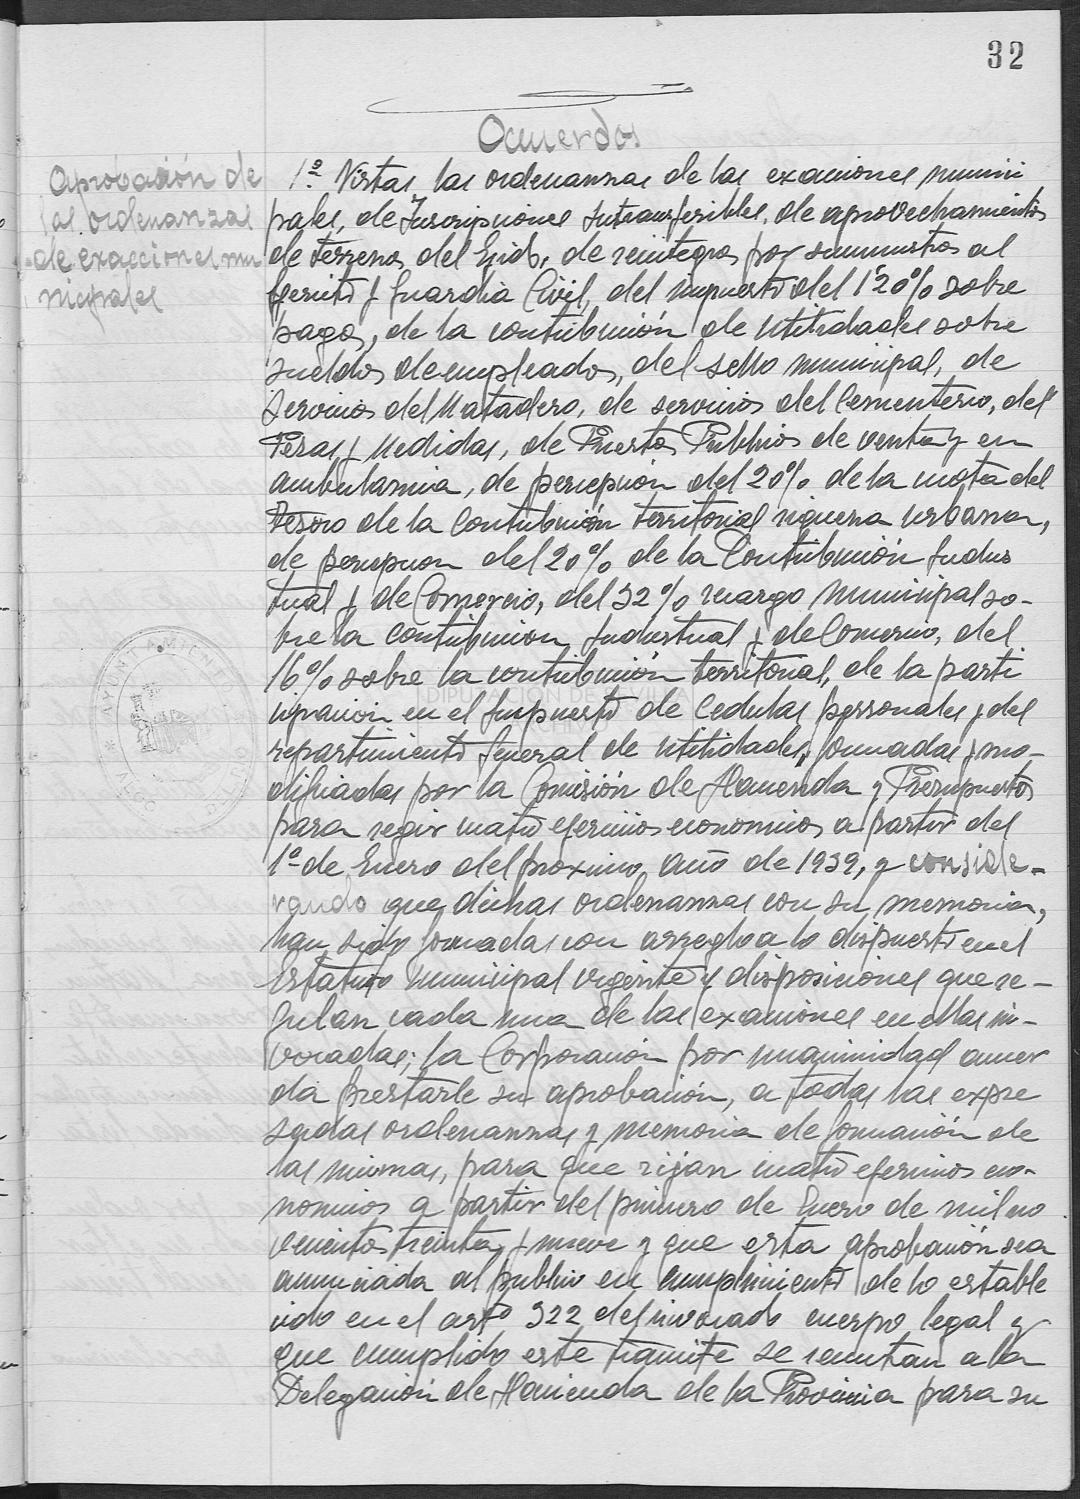 32
Acuerdos
Aprobación de
las ordenanzas
de exacciones mu
nicipales
1º Vistas las ordenanzas de las exaciones munici
pales, de Inscripciones Intransferibles, de aprovechamientos
de terrenos del Egido, de reintegros por suministros al
Egercito y Guardia Civil, del impuesto del 1'20% sobre
pagos, de la contribución de Utilidades sobre
sueldos de empleados, del sello municipal, de
servicios del Matadero, de servicios del Cementerio, del
Pesas y Medidas, de Puestos Publicos de venta y en
ambulancia, de percepción del 20% de la cuota del
tesoro de la Contribución territorial riqueza urbana,
de percepcion del 20% de la Contribución Indus
trial y de Comercio, del 32% recargo municipal so-
bre la contribucion Industrial y de Comercio, del
16% sobre la contribución territorial, de la parti
cipacion en el Impuesto de Cedulas personales y del
repartimiento general de utilidades, formadas y mo-
dificadas por la Comisión de Hacienda y Presupuestos
para regir cuatro egercicios economicos a partir del
1º de Enero del proximo año de 1939, y conside-
rando que dichas ordenanzas con su memoria,
han sido formadas con arreglo a lo dispuesto en el
Estatuto Municipal vigente y disposiciones que re-
gulan cada una de las exaciones en ellas in-
vocadas; la Corporación por unanimidad acuer
da prestarle su aprobación, a todas las expre
sadas ordenanzas y memoria de formación de
las mismas, para que rijan cuatro egercicios eco-
nomicos a partir del primero de Enero de mil no
vecientos treinta y nueve y que esta aprobación sea
anunciada al publico en cumplimiento de lo estable
cido en el artº 322 del invocado cuerpo legal y
que cumplido este tramite se remitan a la
Delegación de Hacienda de la Provincia para su
AYUNTAMIENTO
DIPUTACIÓN DE SEVILLA
ARCHIVO